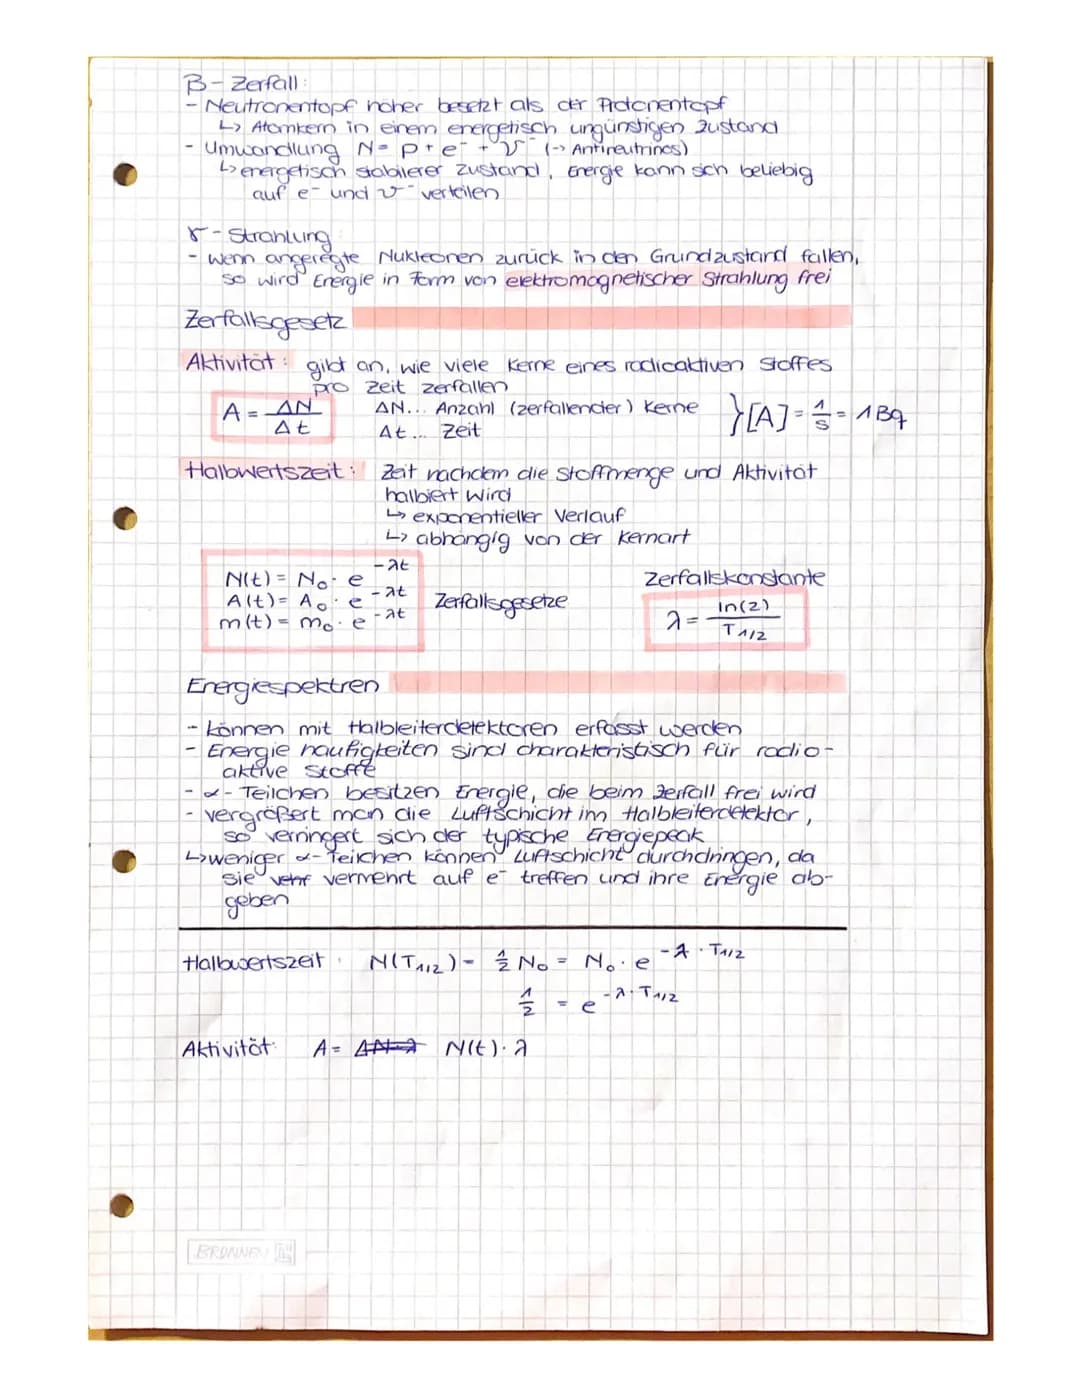 β-Zerfall:
- Neutronentopf höher besetzt als der Protonentopf
↳ Atomkern in einem energetisch ungünstigen Zustand
- Umwandlung N = p + e⁻ + ν⁻ (→ Antineutrinos)
↳ energetisch stabilerer Zustand, Energie kann sich beliebig
auf e⁻ und ν⁻ verteilen
γ-Strahlung:
- wenn angeregte Nukleonen zurück in den Grundzustand fallen,
so wird Energie in Form von elektromagnetischer Strahlung frei
Zerfallsgesetz
Aktivität: gibt an, wie viele Kerne eines radioaktiven Stoffes
pro Zeit zerfallen
A = ΔN/Δt ΔN... Anzahl (zerfallender) Kerne } [A] = 1/s = 1 Bq
Δt... Zeit
Halbwertszeit: Zeit nachdem die Stoffmenge und Aktivität
halbiert wird
↳ exponentieller Verlauf
↳ abhängig von der Kernart
N(t) = N₀ · e^(-λt) Zerfallskonstante
A(t) = A₀ · e^(-λt) Zerfallsgesetze λ = ln(2)/T1/2
m(t) = m₀ · e^(-λt)
Energiespektren
- können mit Halbleiterdetektoren erfasst werden
- Energie häufigkeiten sind charakteristisch für radio-
aktive Stoffe
- α-Teilchen besitzen Energie, die beim Zerfall frei wird
- vergrößert man die Luftschicht im Halbleiterdetektor,
so verringert sich der typische Energiepeak
↳ weniger α-Teilchen können Luftschicht durchdringen, da
sie vermehrt auf e⁻ treffen und ihre Energie ab-
geben
Halbwertszeit: N(T1/2) = 1/2 N₀ = N₀ · e^(-λ · T1/2)
1/2 = e^(-λ · T1/2)
Aktivität: A = N(t) · λ
BRUNNEN